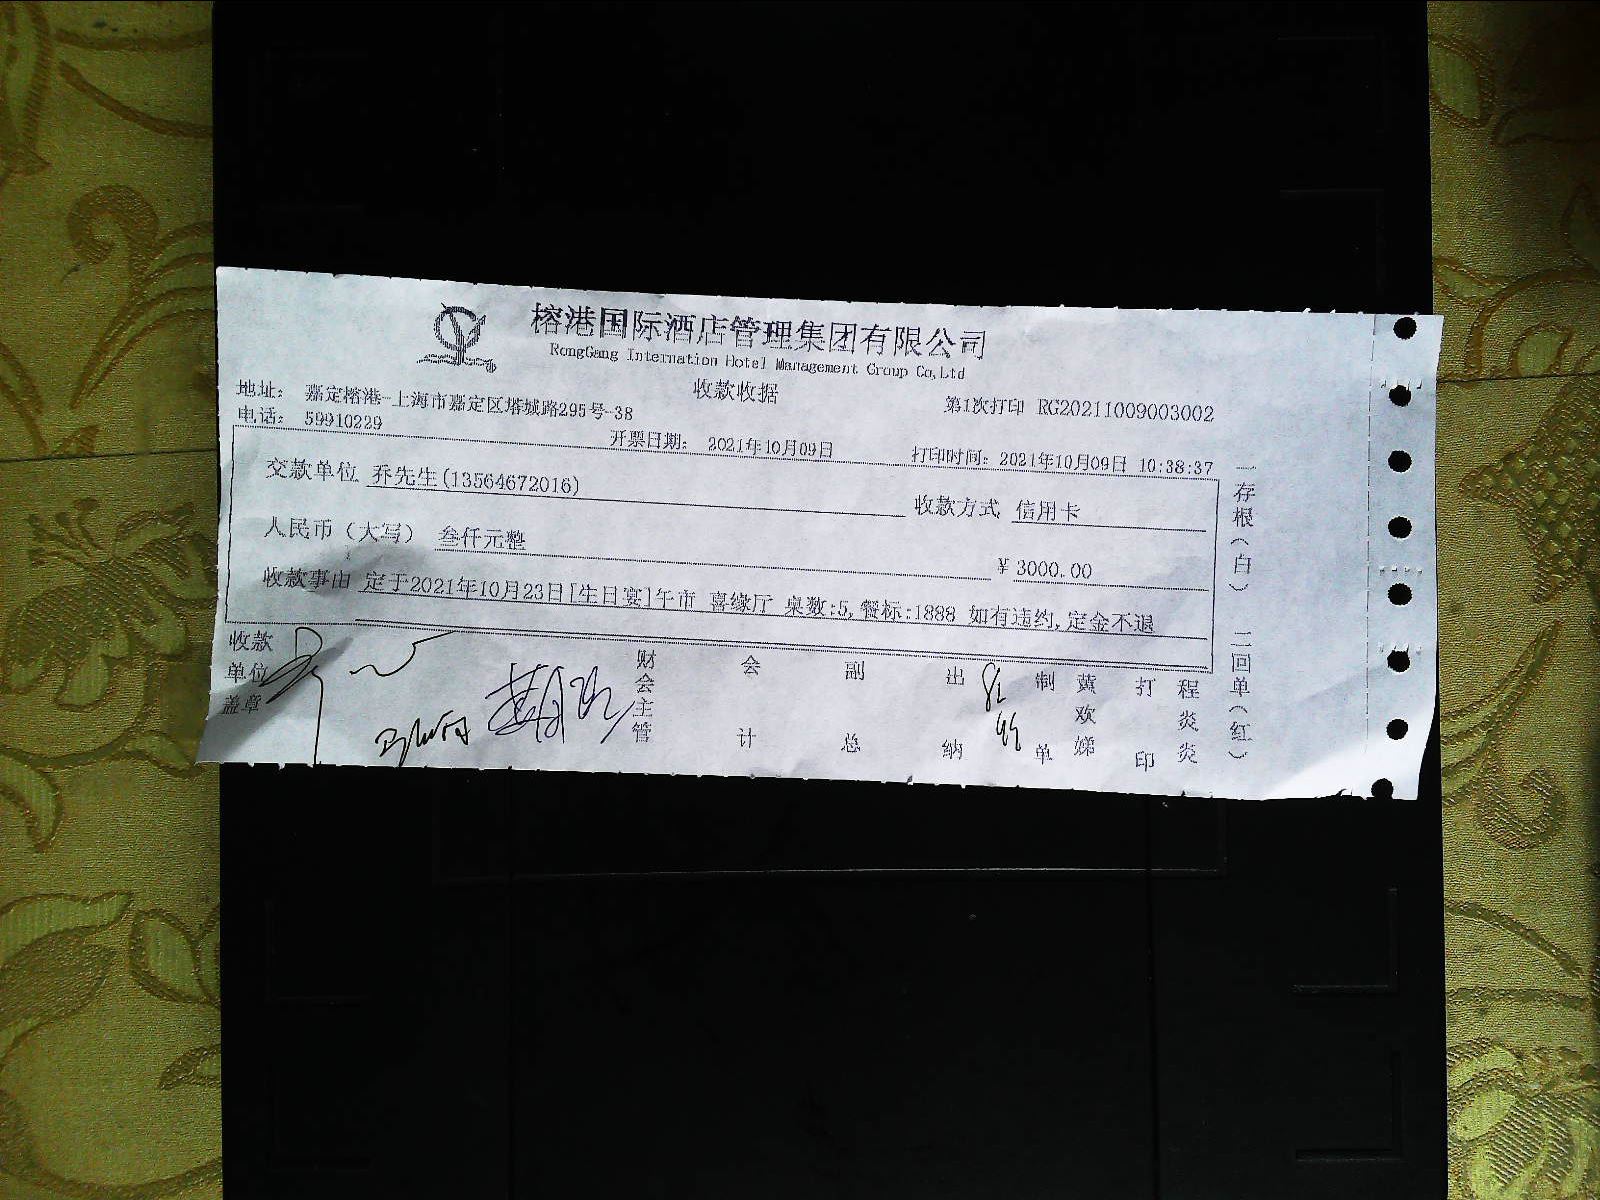 榕港国际酒店管理集团有限公司
RongGang Internation Hotel Management Group Co,Ltd
收款收据
地址： 嘉定榕港-上海市嘉定区塔城路295号-38
第1次打印 RG20211009003002
电话： 59910229
开票日期： 2021年10月09日
打印时间：2021年10月09日 10:38:37
交款单位 乔先生(13564672016)
收款方式 信用卡
人民币（大写） 叁仟元整
￥3000.00
收款事由 定于2021年10月23日[生日宴]午市 喜缘厅 桌数:5,餐标:1888 如有违约,定金不退
收款单位盖章
财会主管
会计
副总
出纳
制单
黄欢娣
打印
程炎炎
一存根（白） 二回单（红）